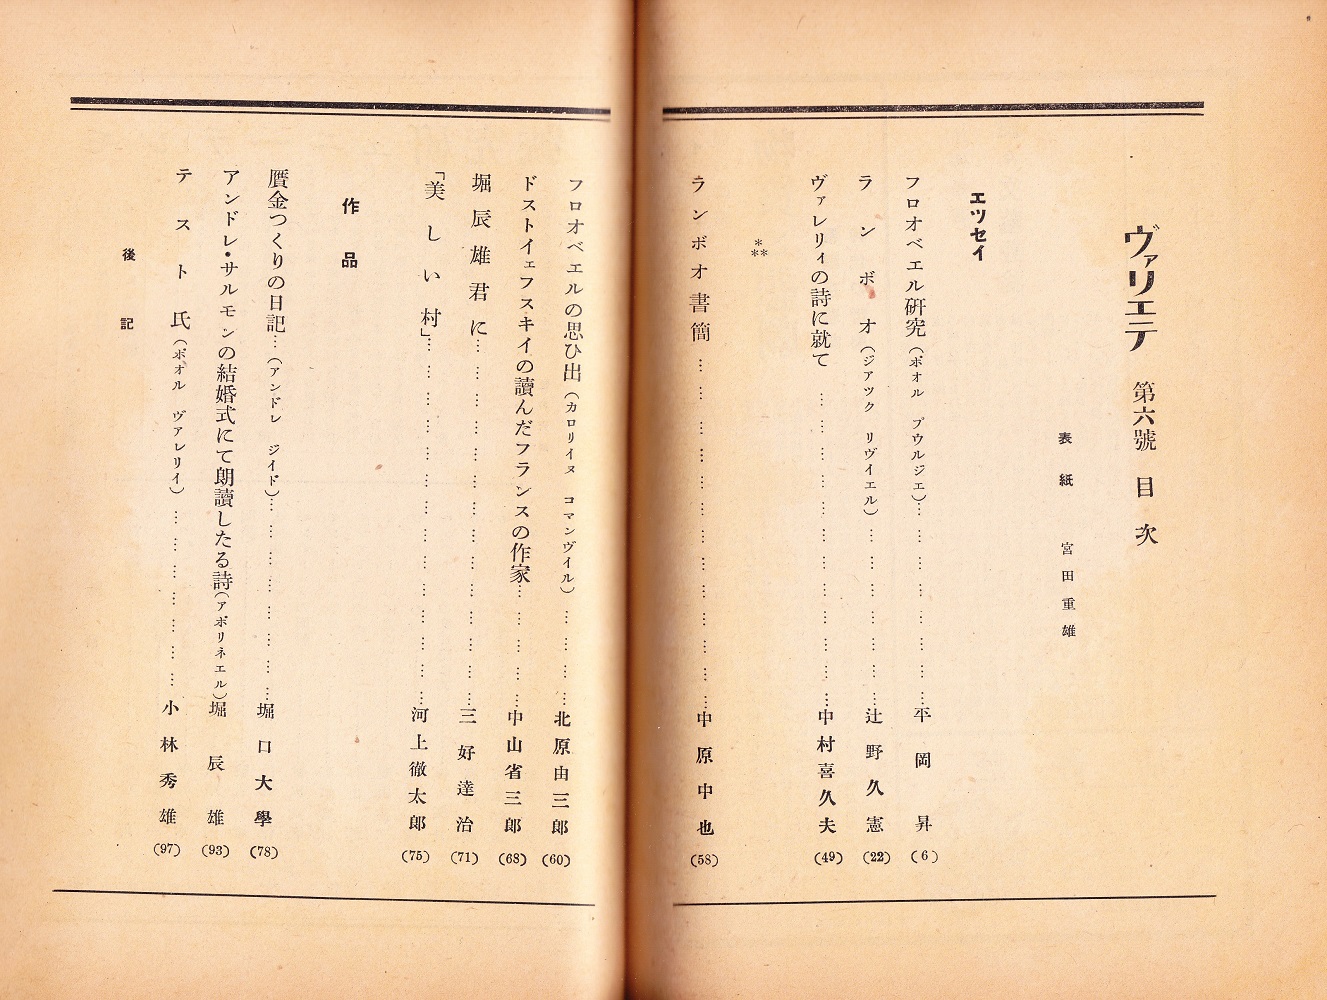 ヴァリエテ 第六號 目次
表紙 宮田重雄
エツセイ
フロオベエル研究(ポオル ブウルジエ)……平岡昇(6)
ランボオ(ジアツク リヴイエル)……辻野久憲(22)
ヴァレリィの詩に就て……中村喜久夫(49)
***
ランボオ書簡……中原中也(58)
フロオベエルの思ひ出(カロリイヌ コマンヴイル)……北原由三郎(60)
ドストイェフスキイの讀んだフランスの作家……中山省三郎(68)
堀辰雄君に……三好達治(71)
「美しい村」……河上徹太郎(75)
作品
贋金つくりの日記……(アンドレ ジイド)……堀口大學(78)
アンドレ・サルモンの結婚式にて朗讀したる詩(アポリネエル)堀辰雄(93)
テスト氏(ポオル ヴアレリイ)……小林秀雄(97)
後記